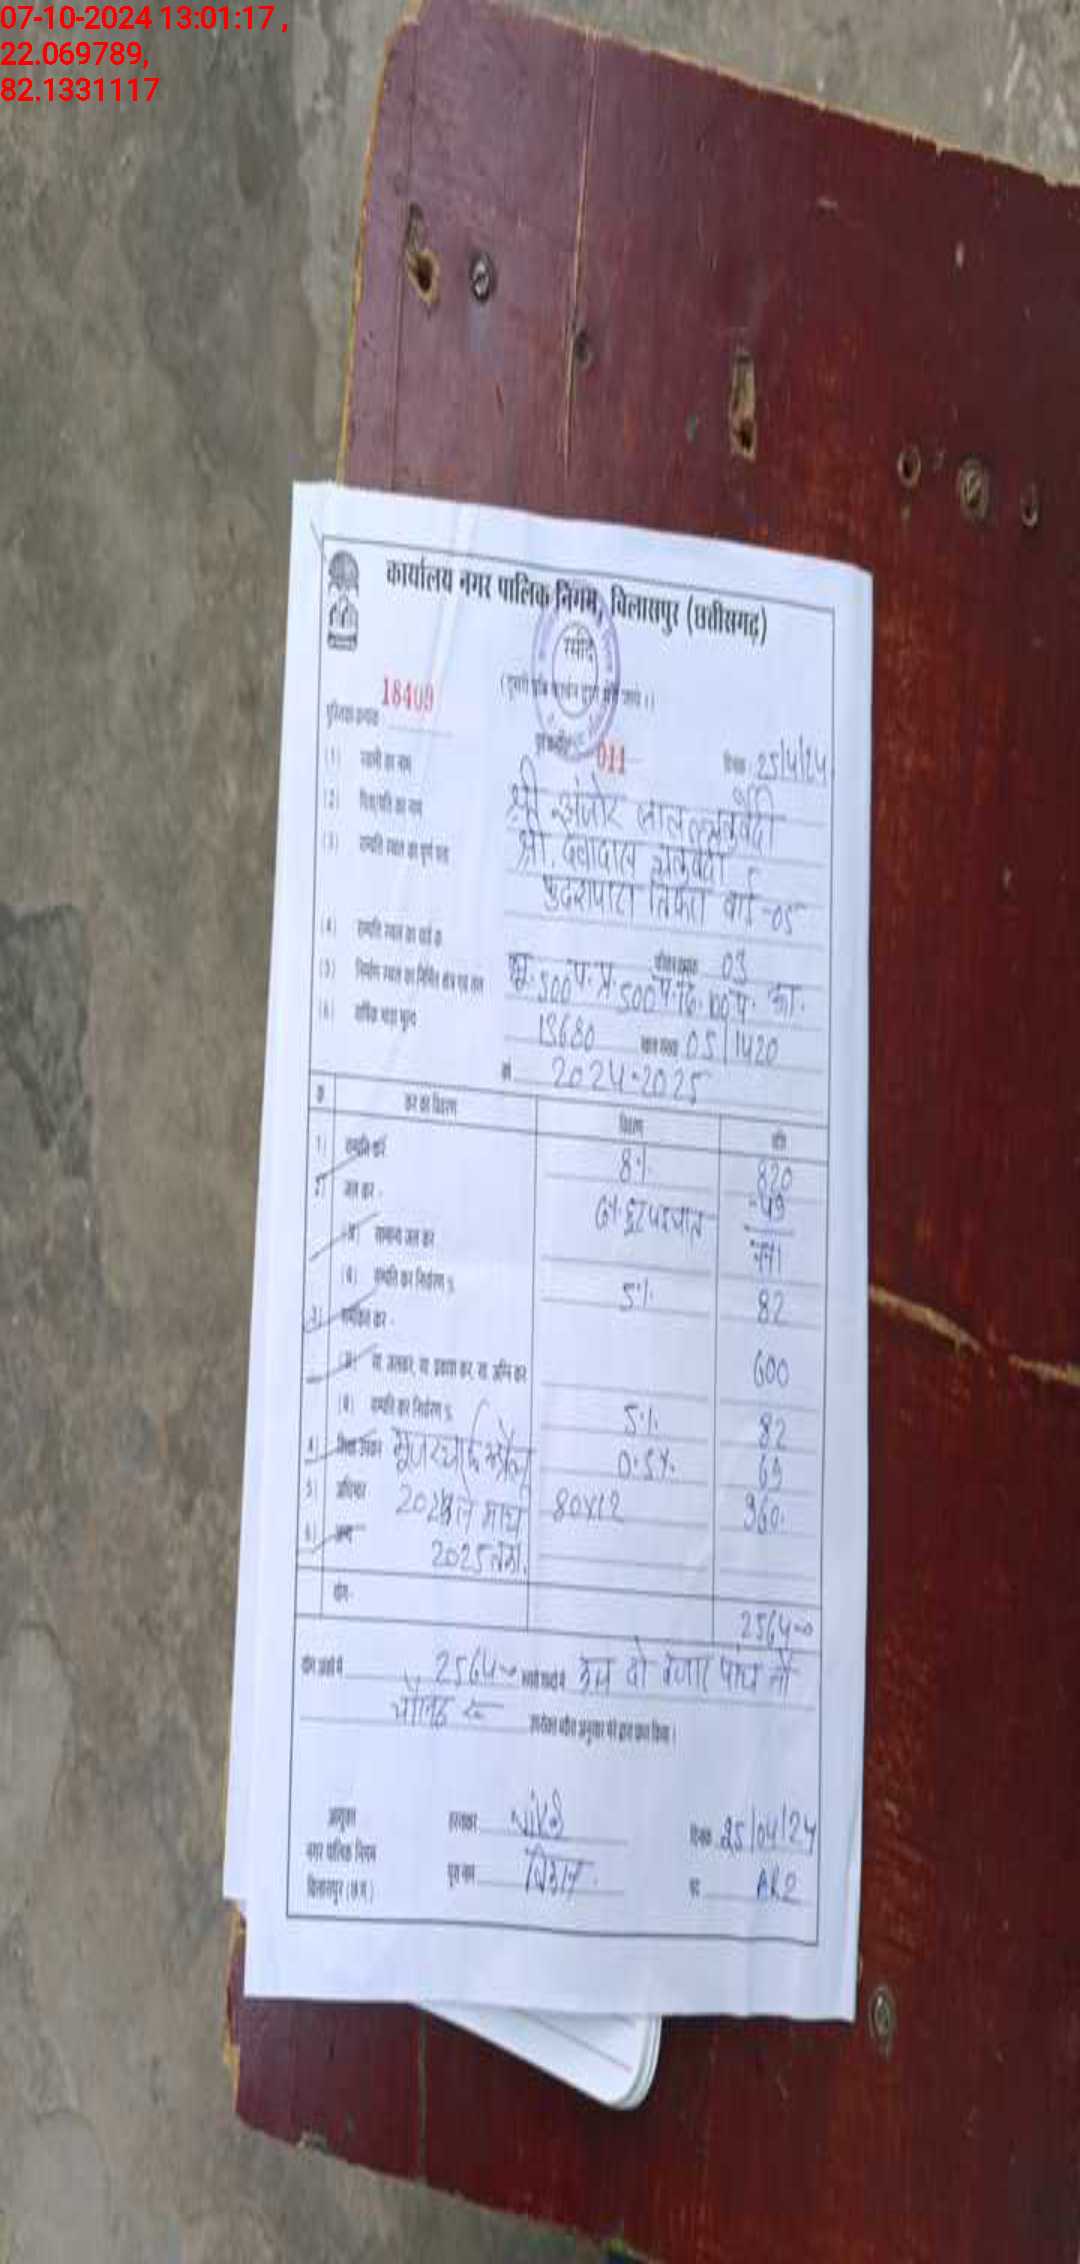 07-10-2024 13:01:17 ,
22.069789,
82.1331117
कार्यालय नगर पालिक निगम, बिलासपुर (छत्तीसगढ़)
रसीद
पुस्तिका क्रमांक 18409
011
दिनांक 25/4/24
(1) स्वामी का नाम श्री अंजोर लाल चतुर्वेदी
(2) पिता/पति का नाम श्री. देवादास चतुर्वेदी
(3) सम्पत्ति स्थल का पूर्ण पता कुदरापारा तिफरा वार्ड-05
(4) सम्पत्ति स्थल का वार्ड क्र 03
(5) निर्माण स्थल का निर्मित क्षेत्र एवं तल भू. 500 प. प्र. 500 प. द्वि. 100 प. का.
(6) वार्षिक भाड़ा मूल्य 13680 05/1420
वर्ष 2024-2025
क्र कर का विवरण विवरण राशि
1) सम्पत्ति कर 8% 820
2) जल कर - 6% छूट पश्चात -49
(अ) सामान्य जल कर 771
(ब) सम्पत्ति कर निर्धारण % 5% 82
3) समेकित कर -
(अ) या जलकर, या प्रकाश कर, या अग्नि कर 600
(ब) सम्पत्ति कर निर्धारण % 5% 82
4) शिक्षा उपकर 0.5% 69
5) अधिभार 80x12 960
6) अन्य
यूजर चार्ज अप्रैल
2024 से मार्च
2025 तक.
योग - 2564-00
योग अंकों में 2564-00 रूपये शब्दों में रूपये दो हजार पांच सौ
चौसठ
आयुक्त
नगर पालिक निगम
बिलासपुर (छ.ग.)
हस्ताक्षर
दिनांक 25/04/24
पूरा नाम
पद ARI